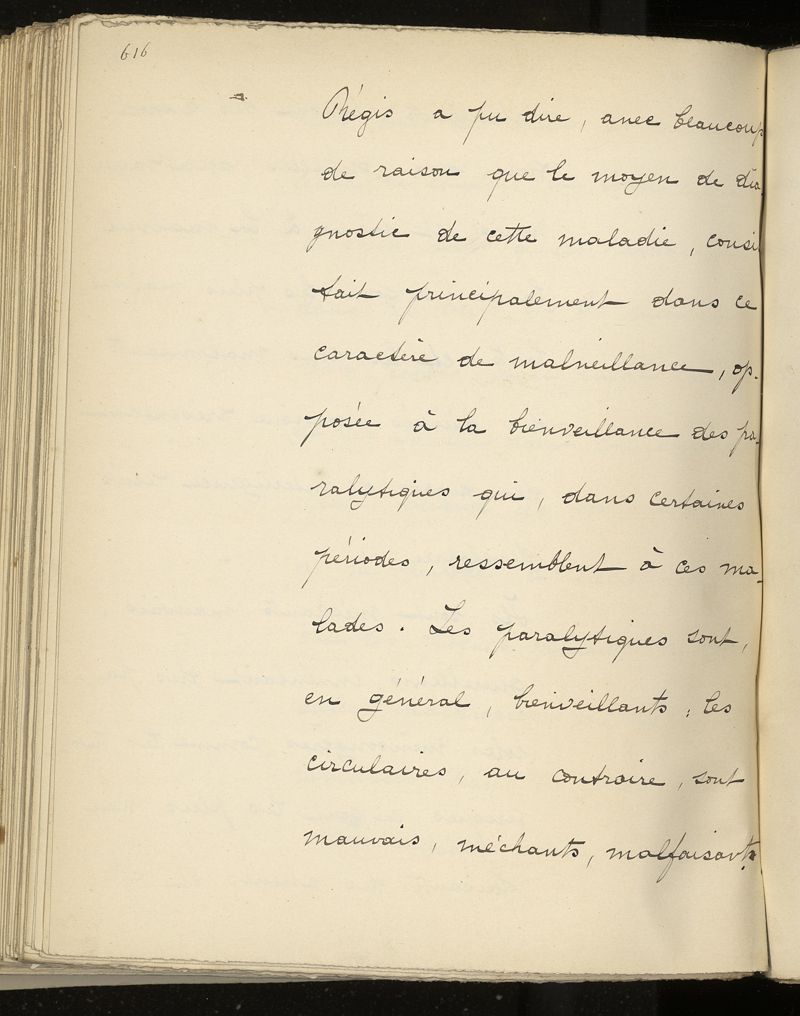 616
Régis a pu dire, avec beaucoup
de raison que le moyen de dia
gnostic de cette maladie, consis
tait principalement dans ce
caractère de malveillance, op-
posée à la bienveillance des pa-
ralytiques qui, dans certaines
périodes, ressemblent à ces ma-
lades. Les paralytiques sont,
en général, bienveillants; les
circulaires, au contraire, sont
mauvais, méchants, malfaisants